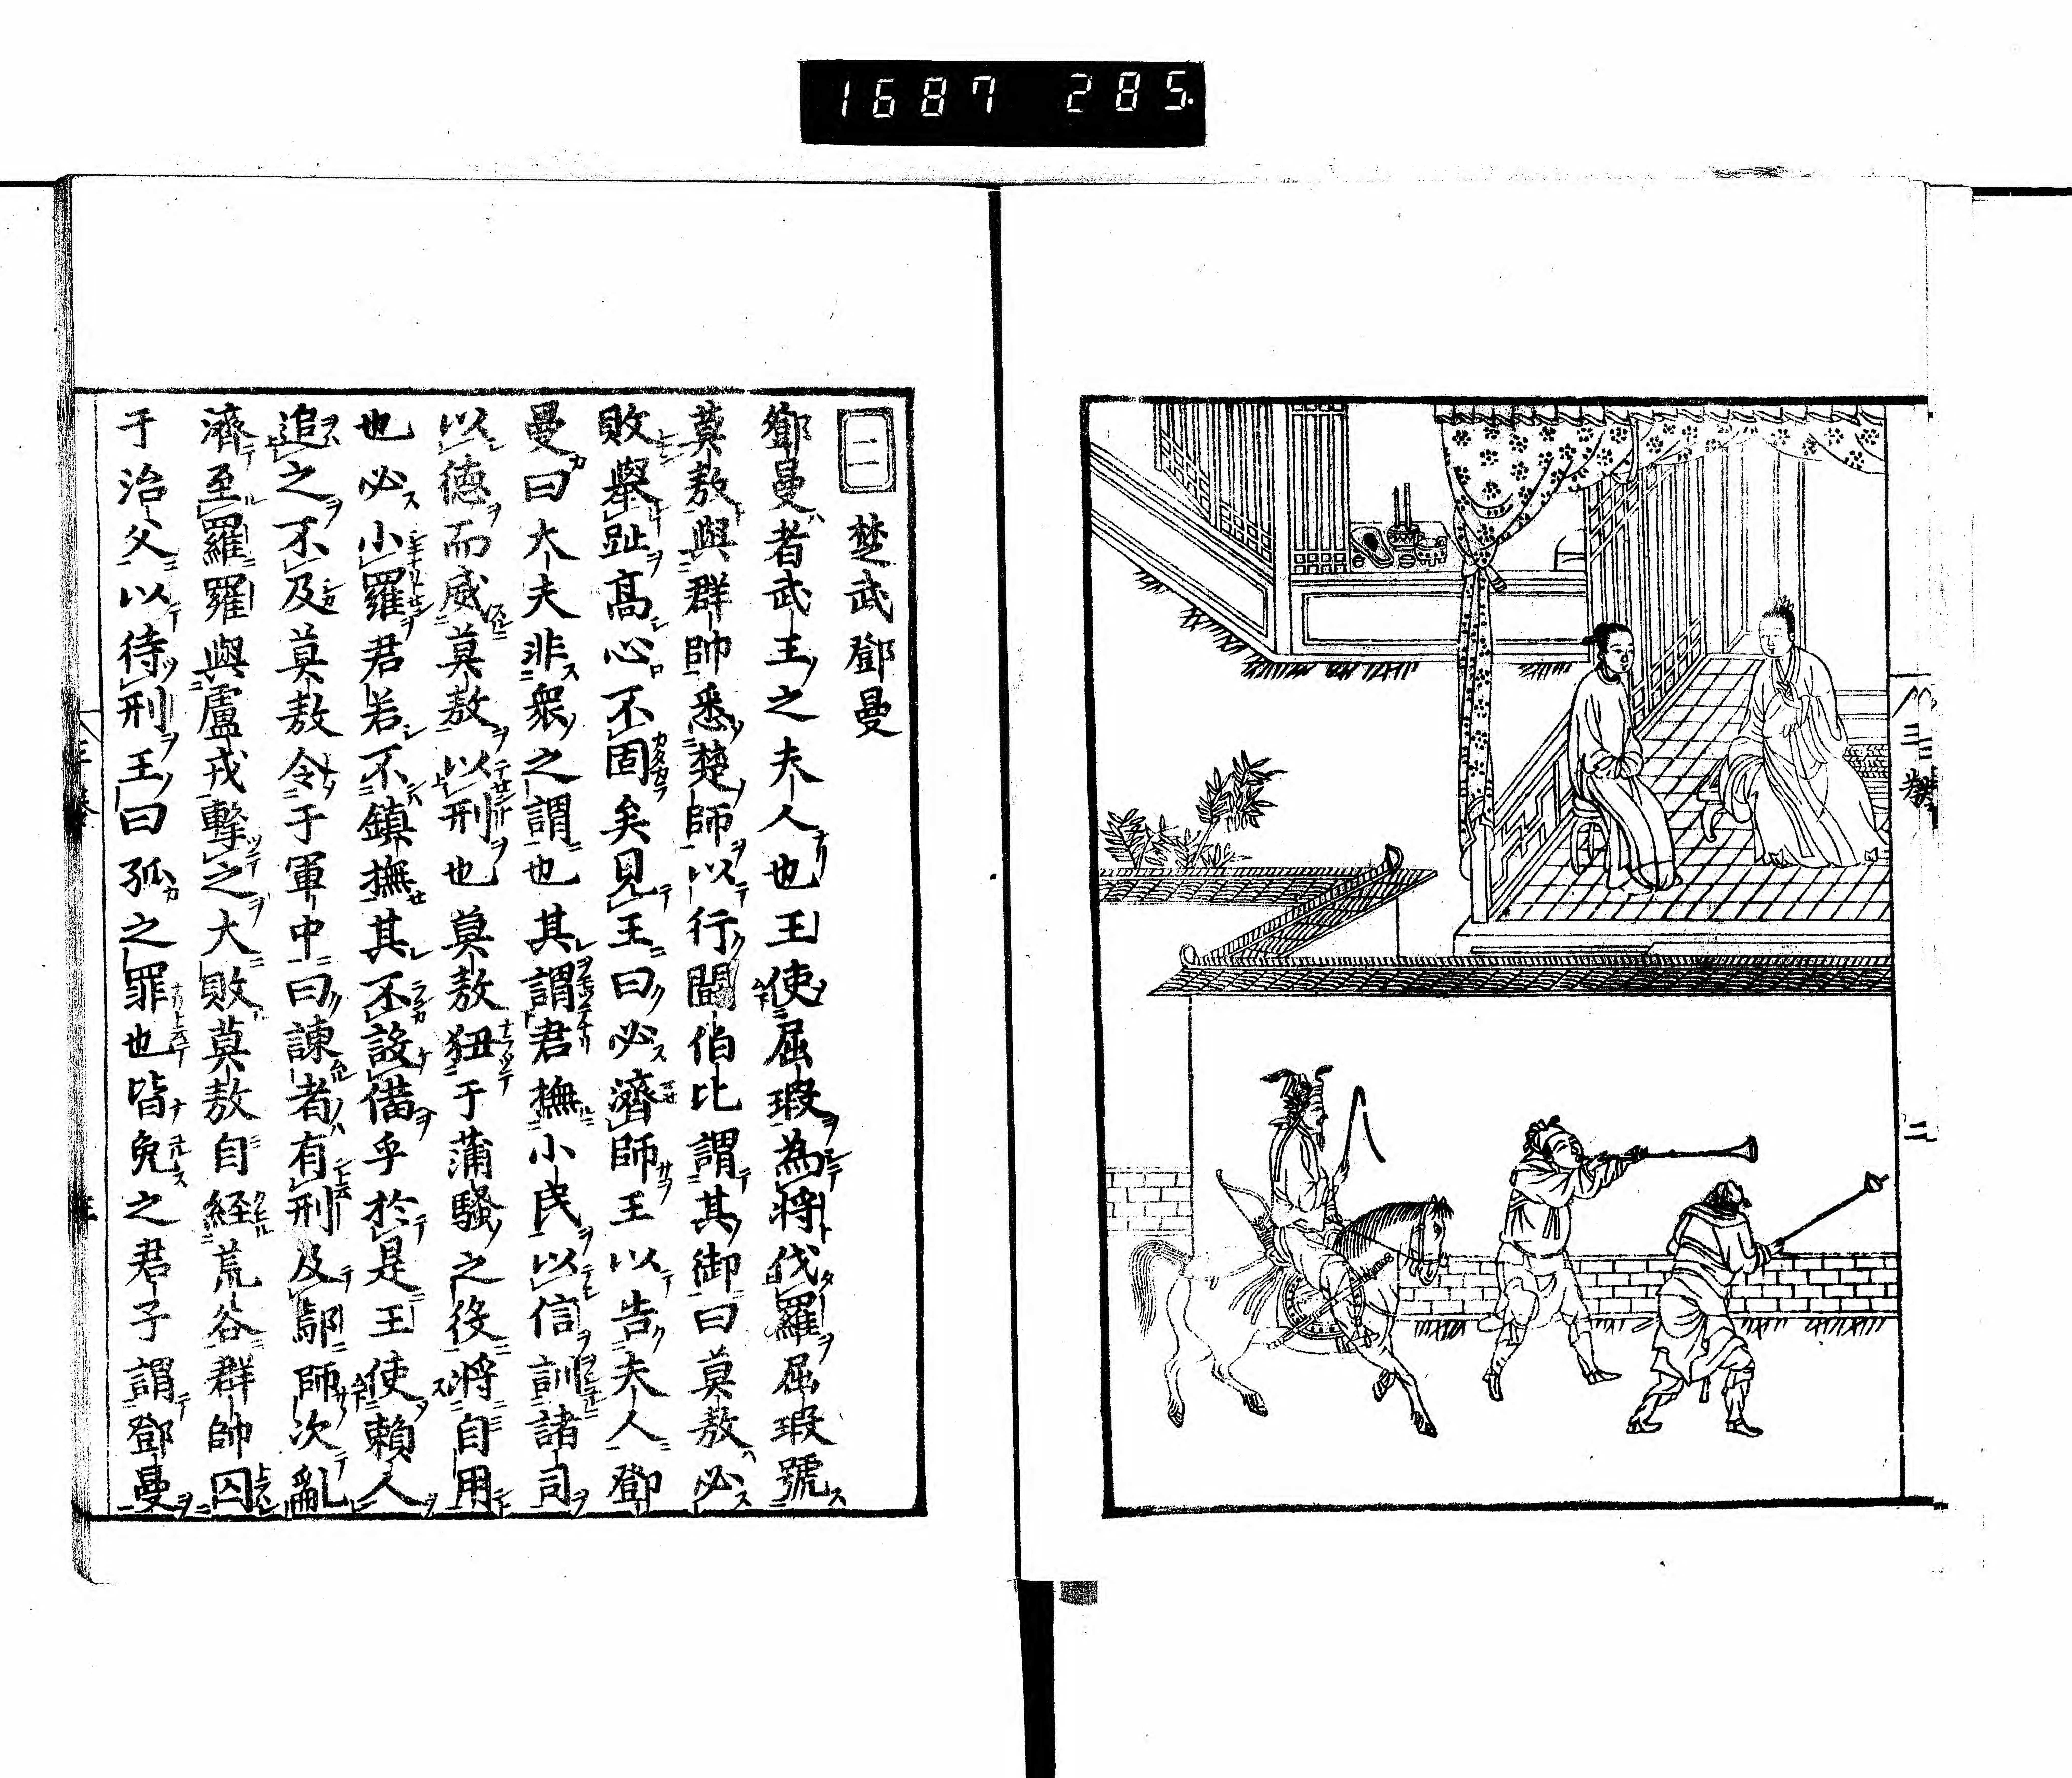 1687 285
三巻
二
二 楚武鄧曼
鄧曼者武王之夫人也王使屈瑕為将伐羅屈瑕號
莫敖與群帥悉楚師以行闘伯比謂其御曰莫敖必
敗擧趾髙心不固矣見王曰必濟師王以告夫人鄧
曼曰大夫非衆之謂也其謂君撫小民以信訓諸司
以徳而威莫敖以刑也莫敖狃于蒲騷之役将自用
也必小羅君若不鎮撫其不設備乎於是王使賴人
追之不及莫敖令于軍中曰諫者有刑及鄢師次亂
濟至羅羅與盧戎撃之大敗莫敖自経荒谷群帥囚
于治父以待刑王曰孤之罪也皆免之君子謂鄧曼